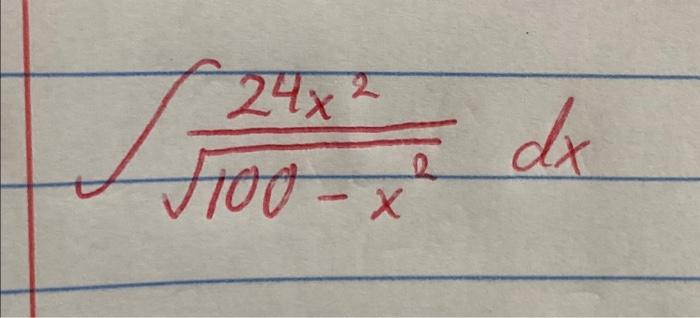 ∫ 24x² / √(100 - x²) dx